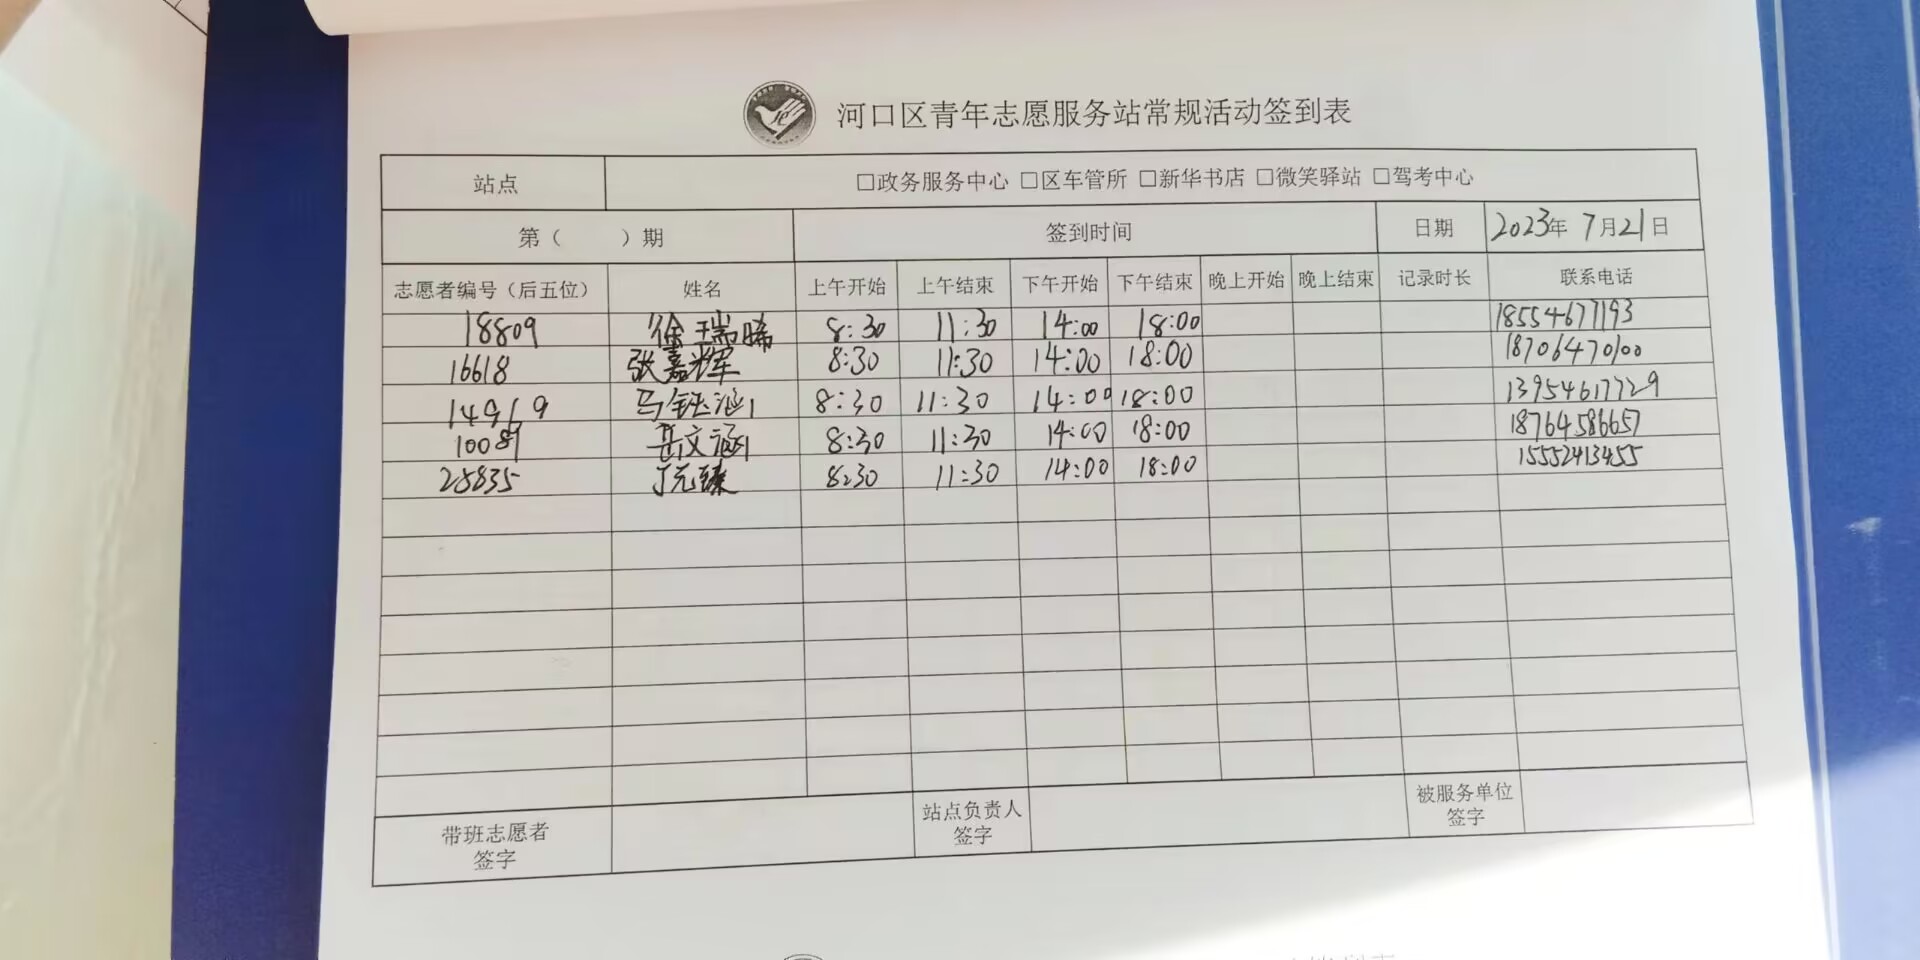 河口区青年志愿服务站常规活动签到表
站点 □政务服务中心 □区车管所 □新华书店 □微笑驿站 □驾考中心
第（ ）期 签到时间 日期 2023年 7月21日
志愿者编号（后五位） 姓名 上午开始 上午结束 下午开始 下午结束 晚上开始 晚上结束 记录时长 联系电话
18809 徐瑞晞 8:30 11:30 14:00 18:00 18554677193
16618 张嘉辉 8:30 11:30 14:00 18:00 18706470100
14919 马钰涵 8:30 11:30 14:00 18:00 13954617729
10089 岳文涵 8:30 11:30 14:00 18:00 18764586657
25835 丁元臻 8:30 11:30 14:00 18:00 15552413455
带班志愿者 站点负责人 被服务单位
签字 签字 签字